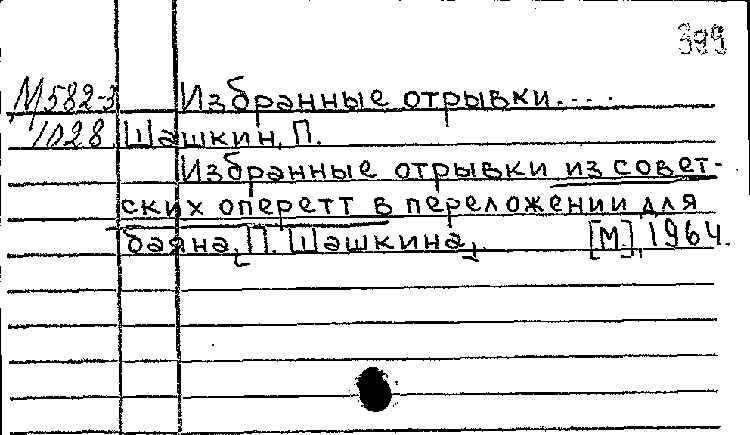 399
М582-3 Избранные отрывки....
1028 Шашкин, П.
Избранные отрывки из совет-
ских оперетт в переложении для
баяна [П. Шашкина]. [М.], 1964.